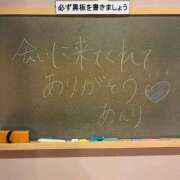 必ず黒板を書きましょう
会いに来てくれて
ありがとう♡
あんり